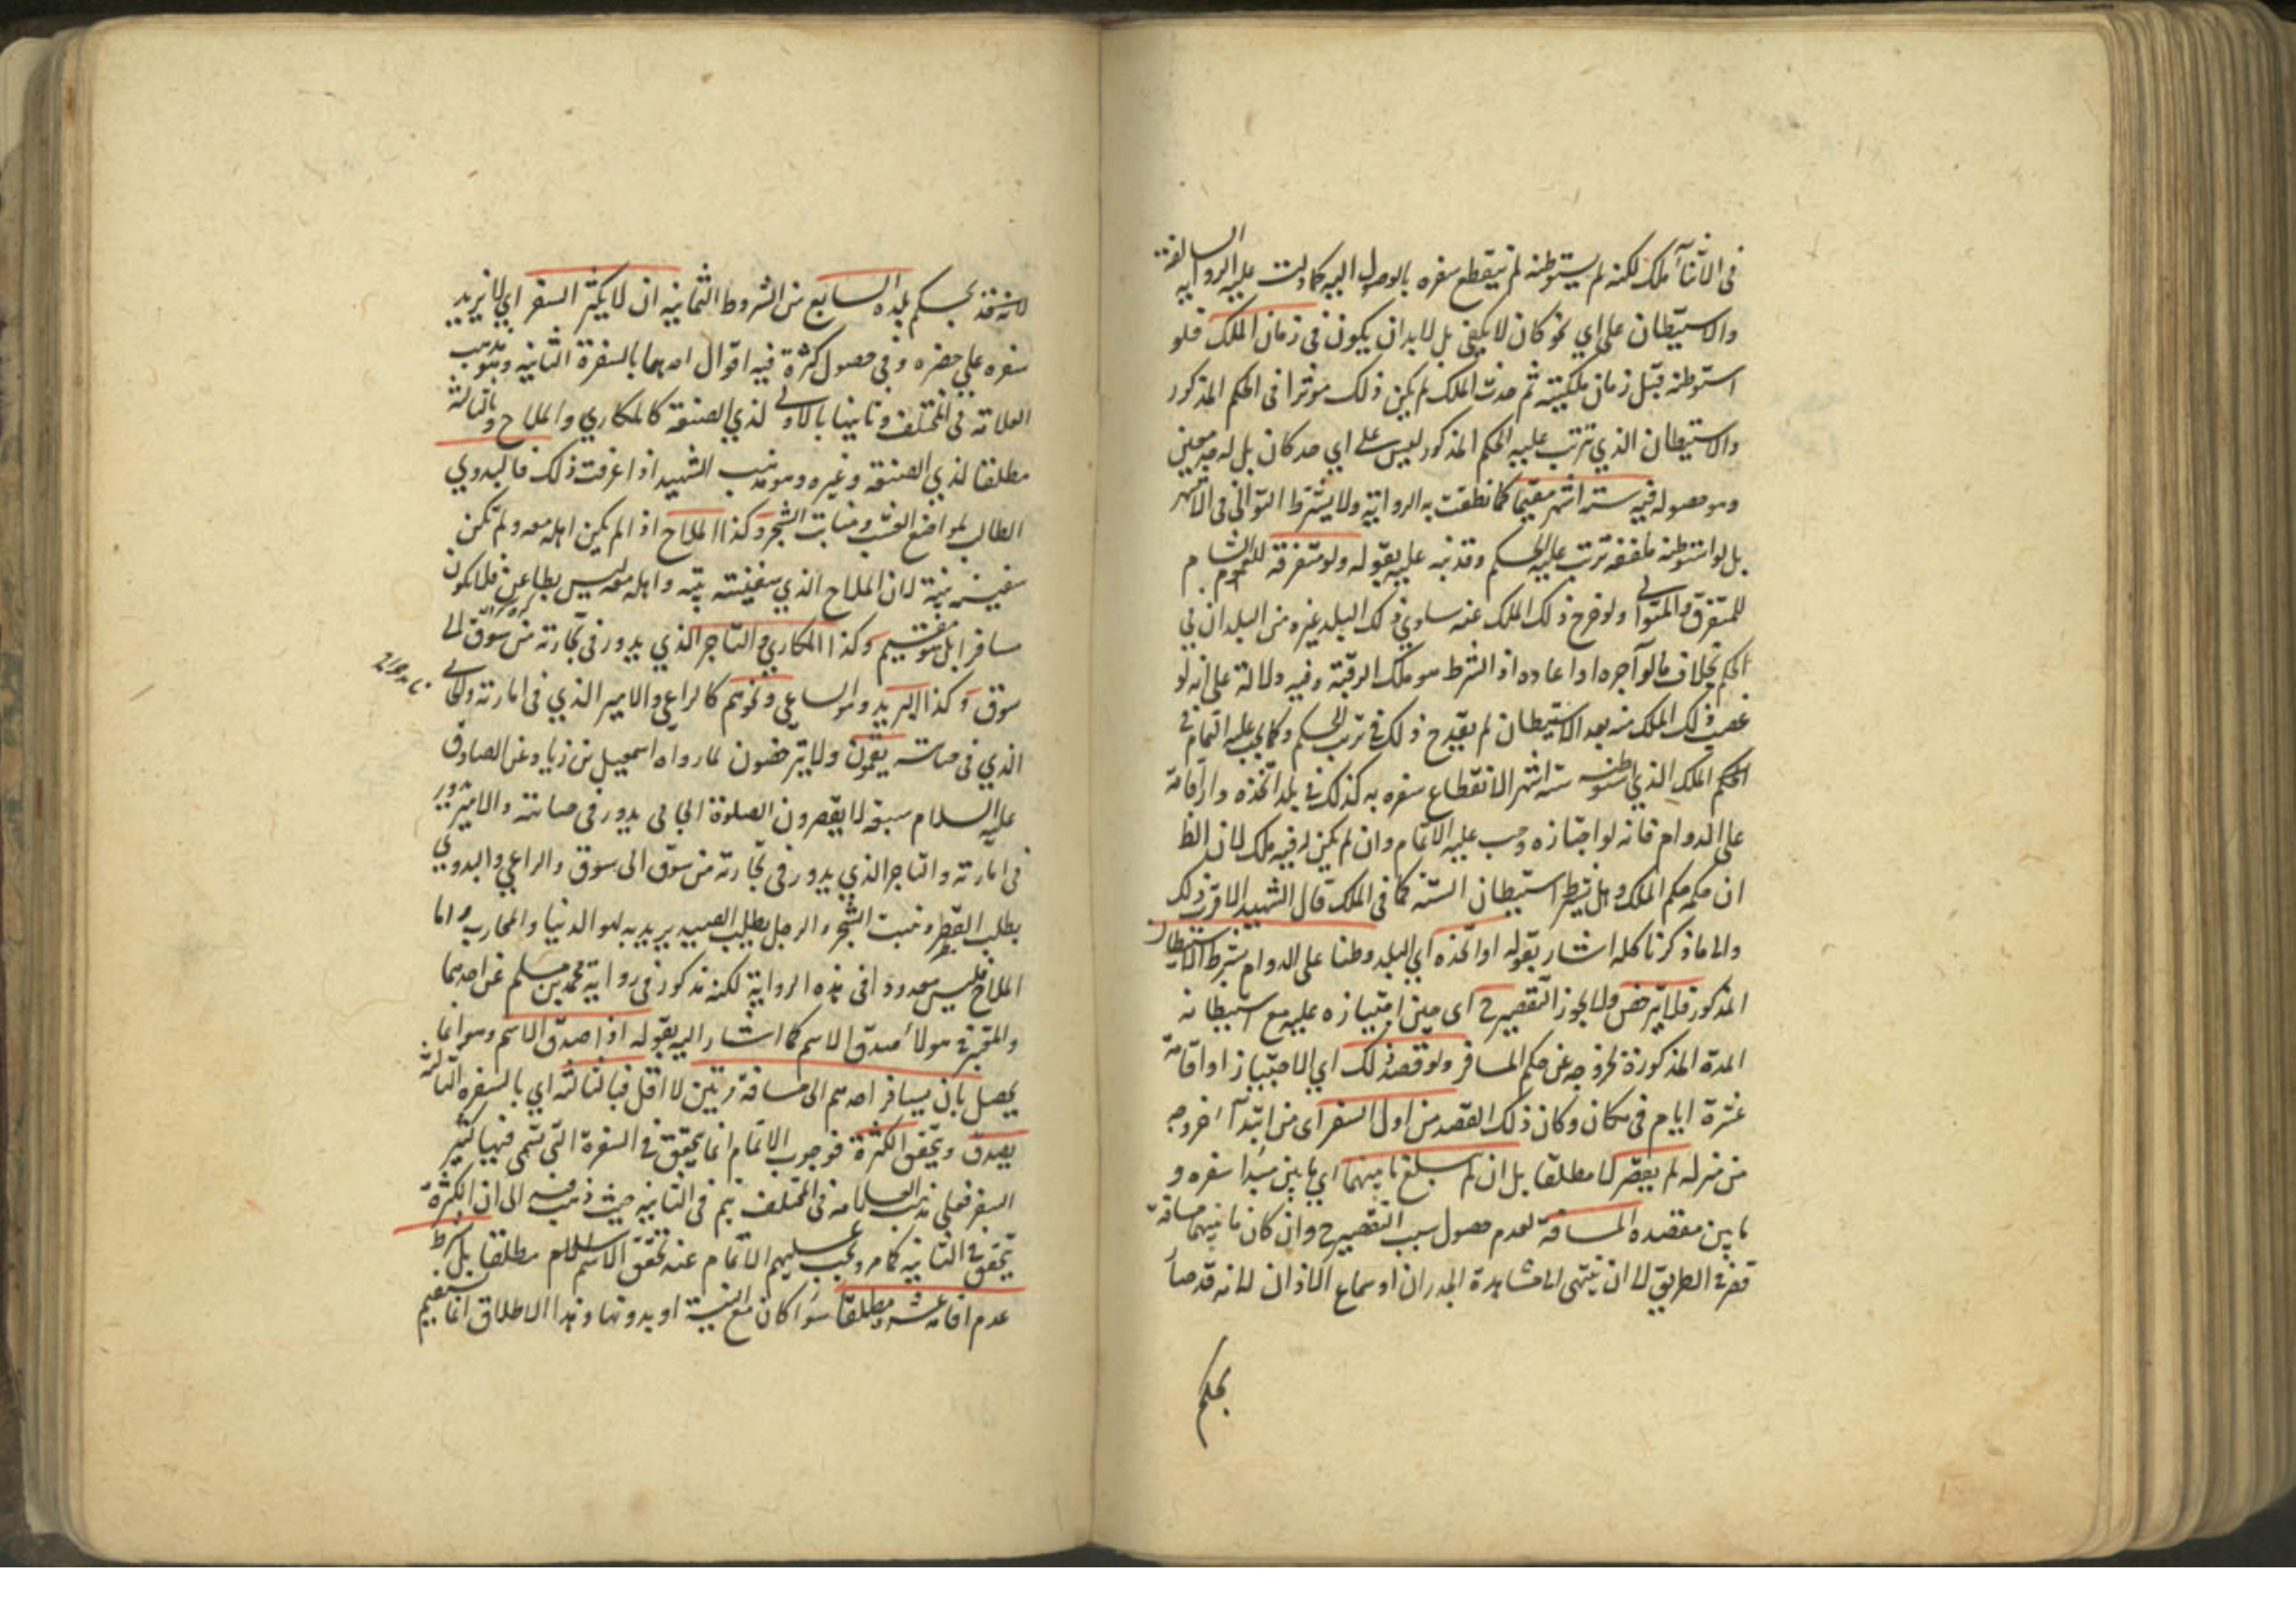 في الاثناء ملك لكنه لم يستوطنه لم ينقطع سفره بالوصول اليه كما دلت عليه الرواية السالفة
والاستيطان على اي نحو كان لا يكفي بل لا بد ان يكون في زمان الملك فلو
استوطنه قبل زمان ملكيته ثم حدث الملك لم يكن ذلك موثرا في الحكم المذكور
والاستيطان الذي ترتب عليه الحكم المذكور ليس على اي حد كان بل له حد معين
وهو حصوله فيه ستة اشهر مقيما كما نطقت به الرواية ولا يشترط التوالي في الاشهر
بل لو استوطنه ملفقة ترتب عليه الحكم وقد نبه عليه بقوله ولو متفرقة
للمتفرق والمتوالي ولو خرج ذلك الملك عنه ساوى ذلك البلد غيره من البلدان في
الحكم بخلاف ما لو آجره او اعاده اذ الشرط هو ملك الرقبة وفيه دلالة على انه لو
غصب ذلك الملك منه بعد الاستيطان لم يقدح ذلك في ترتب الحكم وكما يجب عليه التمام في
الملك الذي استوطنه ستة اشهر لانقطاع سفره به كذلك في بلد اتخذه دار اقامة
على الدوام فانه لو اجتازه وجب عليه الاتمام وان لم يكن له فيه ملك لان الظ
ان حكمه حكم الملك وهل يشترط استيطان الستة كما في الملك قال الشهيد الاقرب ذلك
والى ما ذكرنا كله اشار بقوله او اتخذه اي البلد وطنا على الدوام بشرط الاستيطان
المذكور فلا يترخص ولا يجوز التقصير ح اى حين اجتيازه عليه مع استيطانه
المدة المذكورة لخروجه عن حكم المسافر ولو قصد ذلك اي الاجتياز او اقامة
عشرة ايام في مكان وكان ذلك القصد من اول السفر اى من ابتداء خروجه
من منزله لم يقصر لا مطلقا بل ان لم يبلغ ما بينهما اي ما بين مبدا سفره و
ما بين مقصده المسافة لعدم حصول سبب التقصير ح وان كان ما بينهما مسافة
قصر في الطريق الى ان ينتهى الى مشاهدة الجدران او سماع الاذان لانه قد صار
بحكم
لانه متخذ بحكم بلده السابع من الشروط الثمانية ان لا يكثر السفر اي لا يزيد
سفره على حضره وفي حصول كثرة فيه اقوال احدها بالسفرة الثانية وهو مذهب
العلامة في المختلف وثانيها بالاولى لذي الصنعة كالمكاري والملاح وبالثالثة
مطلقا لذي الصنعة وغيره وهو مذهب الشهيد اذا عرفت ذلك فالبدوي
الطالب لمواضع العشب ومنابت الشجر وكذا الملاح اذا لم يكن اهله معه ولم تكن
سفينته بيته لان الملاح الذي سفينته بيته واهله معه ليس بظاعن فلا يكون
مسافرا بل هو مقيم وكذا المكاري والتاجر الذي يدور في تجارته من سوق الى
سوق وكذا البريد وهو الساعي ونحوهم كالراعي والامير الذي في امارته والجابي
الذي في جبايته يتمون ولا يترخصون لما رواه اسمعيل بن زياد عن الصادق
عليه السلام سبعة لا يقصرون الصلوة الجابي يدور في جبايته والامير يدور
في امارته والتاجر الذي يدور في تجارته من سوق الى سوق والراعي والبدوي
يطلب القطر ومنبت الشجر والرجل يطلب الصيد يريد به لهو الدنيا والمحارب واما
الملاح فليس معدودا في هذه الرواية لكنه مذكور في رواية محمد بن مسلم عن احدهما
والمعتبر في هولاء صدق الاسم كما اشار اليه بقوله اذا صدق الاسم وهو انما
يحصل بان يسافر احدهم الى مسافة مرتين لا اقل فبالثالثة اي بالسفرة الثالثة
يصدق ويتحقق الكثرة فوجوب الاتمام انما يتحقق في السفرة التي تسمى فيها كثير
السفر فعلى مذهب العلامة في المختلف يتم في الثانية حيث ذهب فيه الى ان الكثرة
يتحقق في الثانية كما مر ويجب عليهم الاتمام عند تحقق الاسم مطلقا بل بشرط
عدم اقامة عشرة مطلقا سواء كان مع النية او بدونها وهذا الاطلاق انما يستقيم